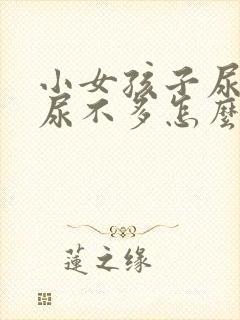 小女孩子尿
尿不多怎麼
蓮之缘